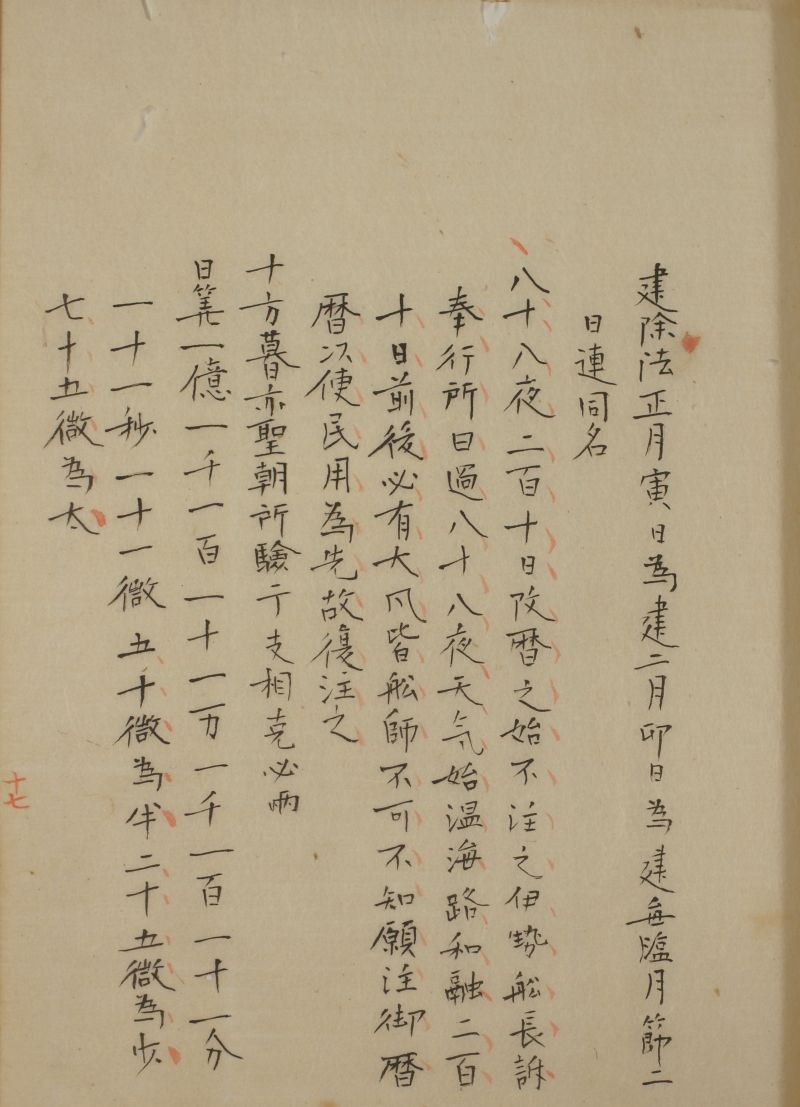 建除法正月寅日為建二月卯日為建每臨月節二
日連同名
八十八夜二百十日改暦之始不注之伊勢舩長訴
奉行所曰過八十八夜天気始温海路和融二百
十日前後必有大凨皆舩師不可不知願注御暦
暦以使民用為先故復注之
十方暮亦聖朝所驗干支相克必雨
日筭一億一千一百一十一万一千一百一十一分
一十一秒一十一微五十微為半二十五微為少
七十五微為太
十七